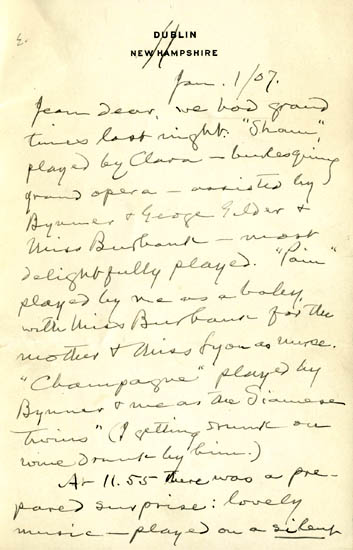 DUBLIN
NEW HAMPSHIRE
Jan. 1/07.
Jean dear, we had grand
times last night. "Sham,"
played by Clara — burlesquing
grand opera — assisted by
Bynner & George Gilder &
Miss Burbank — most
delightfully played. "Pain"
played by me as a baby,
with Miss Burbank for the
mother & Miss Lyon as nurse.
"Champagne" played by
Bynner & me as the Siamese
Twins" (I getting drunk on
wine drunk by him.)
At 11.55 there was a pre-
pared surprise: lovely
music — played on a silent